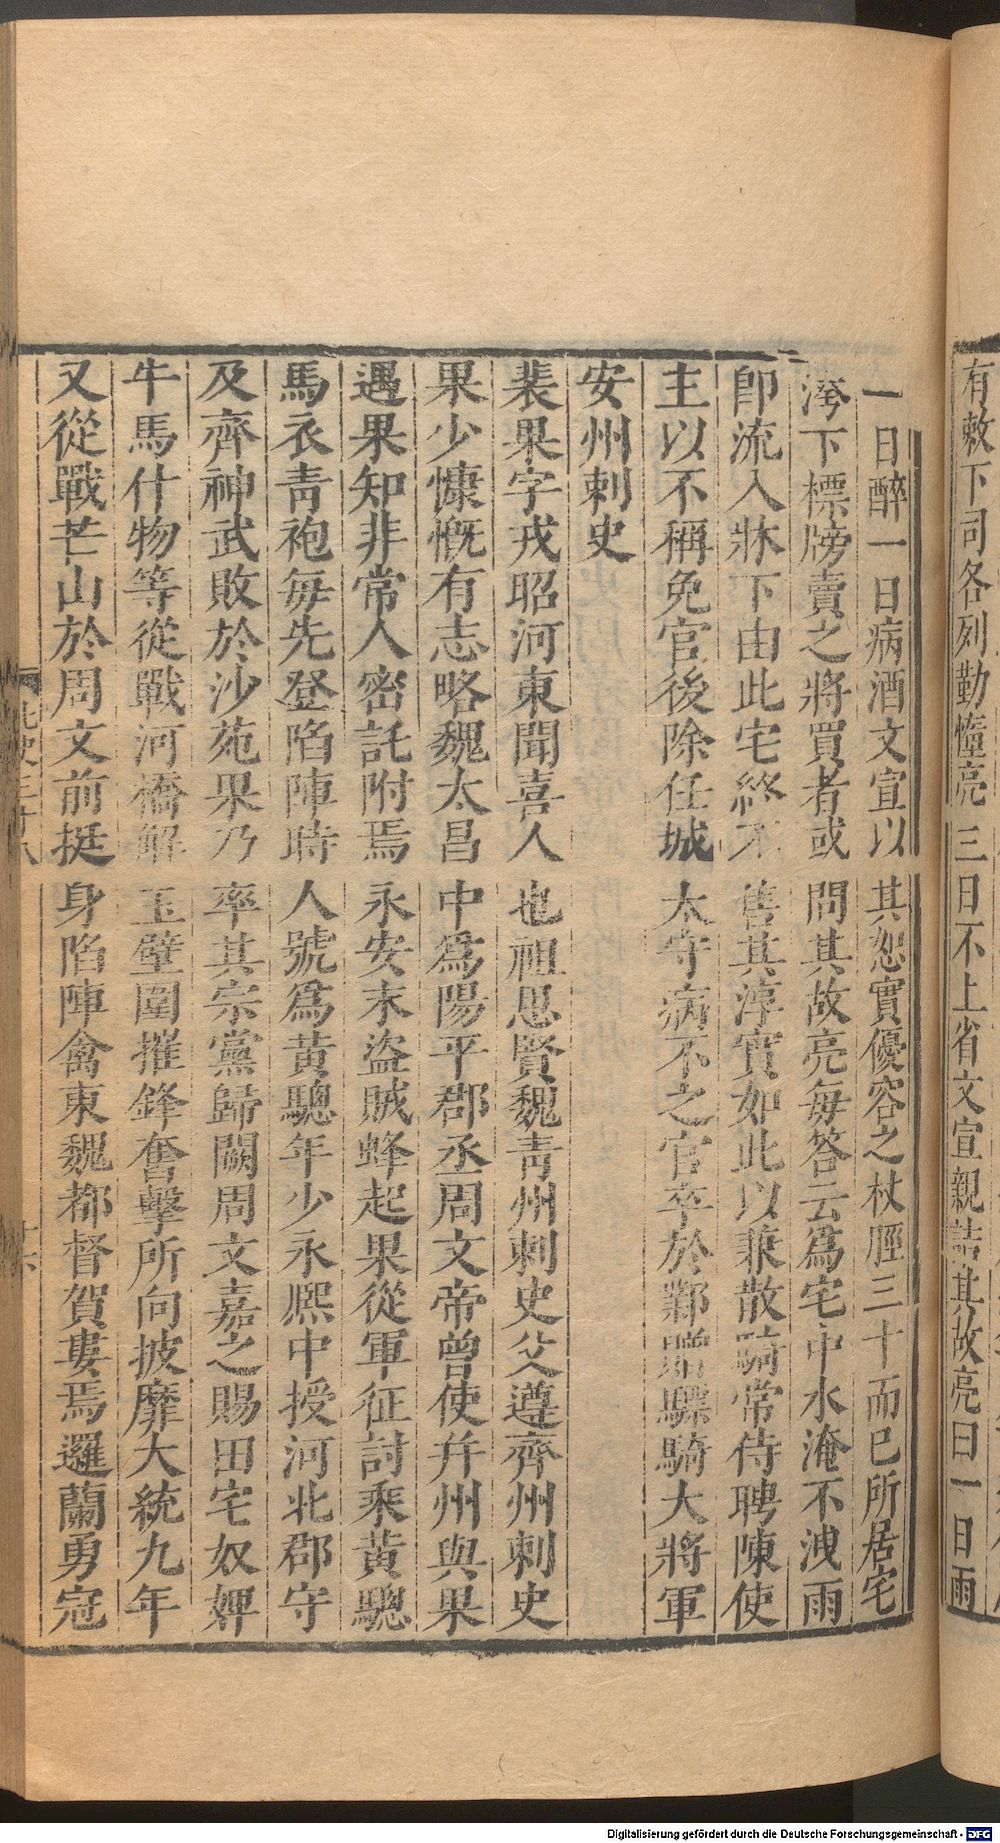 有敕下司各列勤惰亮三日不上省文宣親詰其故亮曰一日雨
一日醉一日病酒文宣以其恕實優容之杖脛三十而已所居宅
洿下標牓賣之將買者或問其故亮每答云爲宅中水淹不洩雨
卽流入牀下由此宅終不售其淳實如此以兼散騎常侍聘陳使
主以不稱免官後除任城太守病不之官卒於鄴贈驃騎大將軍
安州刺史
裴果字戎昭河東聞喜人也祖思賢魏靑州刺史父遵齊州刺史
果少慷慨有志略魏太昌中爲陽平郡丞周文帝曾使幷州與果
遇果知非常人密託附焉永安末盜賊蜂起果從軍征討乘黃驄
馬衣靑袍每先登陷陣時人號爲黃驄年少永熙中授河北郡守
及齊神武敗於沙苑果乃率其宗黨歸闕周文嘉之賜田宅奴婢
牛馬什物等從戰河橋解玉壁圍摧鋒奮擊所向披靡大統九年
又從戰芒山於周文前挺身陷陣禽東魏都督賀婁焉邏蘭勇冠
北史三十八
十六
Digitalisierung gefördert durch die Deutsche Forschungsgemeinschaft - DFG